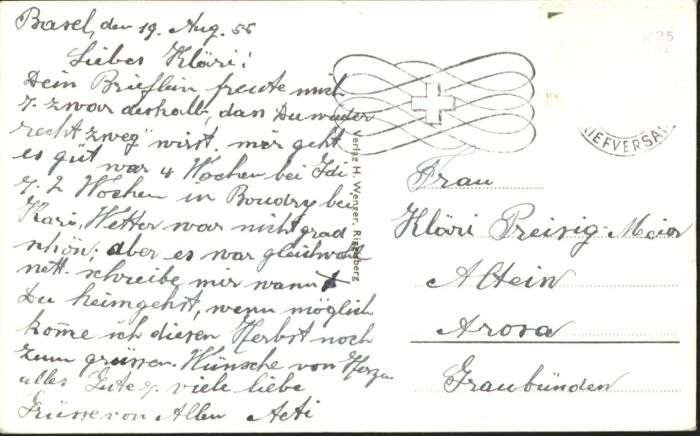 Basel, den 19. Aug. 56
Liebes Kläri!
Dein Brieflein freute mich
u. zwar deshalb, dass Du wieder
recht zweg wirst. mir geht
es gut war 4 Wochen bei Idi
u. 2 Wochen in Boudry bei
Kari, Wetter war nicht grad
schön; aber es war gleichwohl
nett. schreibe mir wann
Du heimgehst, wenn möglich
kome ich diesen Herbst noch
zum grüssen. Wünsche von Herzen
alles Gute u. viele liebe
Grüsse von Allen Aeti
Verlag H. Wenger, Riggisberg
IEFVERSA
Frau
Kläri Preisig-Meier
Altein
Arosa
Graubünden